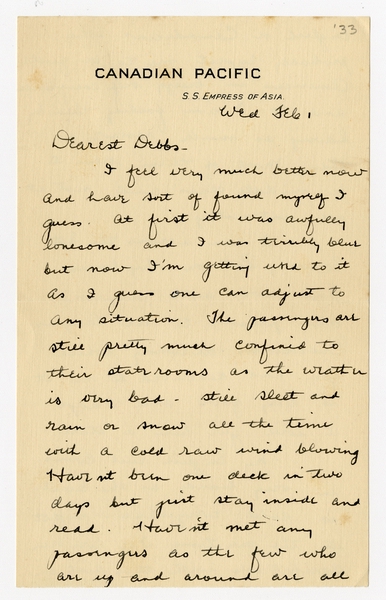 '33
CANADIAN PACIFIC
S.S. EMPRESS OF ASIA.
Wed Feb 1
Dearest Debbs-
I feel very much better now
and have sort of found myself I
guess. At first it was awfully
lonesome and I was terribly blue
but now I'm getting used to it
as I guess one can adjust to
any situation. The passengers are
still pretty much confined to
their staterooms as the weather
is very bad - still sleet and
rain or snow all the time
with a cold raw wind blowing
Haven't been one deck in two
days but just stay inside and
read. Haven't met any
passengers as the few who
are up and around are all